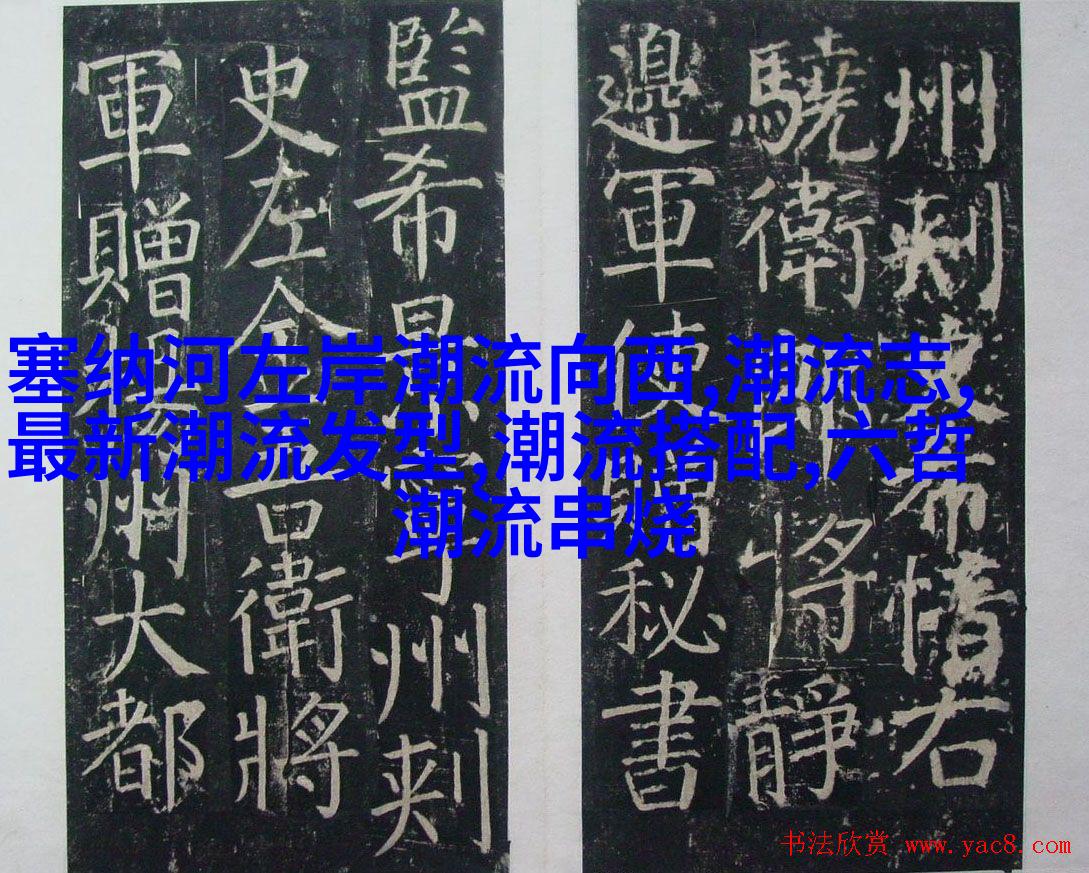 塞纳河左岸潮流向西,潮流志,
最新潮流发型,潮流搭配,六哲
潮流串烧
州刺史希右
驍衛將靜
邊軍使贈秘書
監希景州刺
史左金吾衛將
軍贈州大都
书法欣赏 www.yac8.com